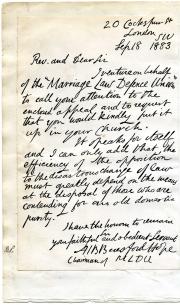 20 Cockspur St
London
SW
Sep 18 1883
Rev. and Dear Sir
I venture on behalf
of the "Marriage Law Defence Union"
to call your attention to the
enclosed appeal and to request
that you would kindly put it
up in your church.
It speaks for itself
and I can only add that the
efficiency of the opposition
to the disastrous change of Law
must greatly depend on the means
at the disposal of those who are
contending for our old domestic
purity.
I have the honour to remain
your faithful and obedient servant
A J B Beresford Hope
Chairman of MLDU